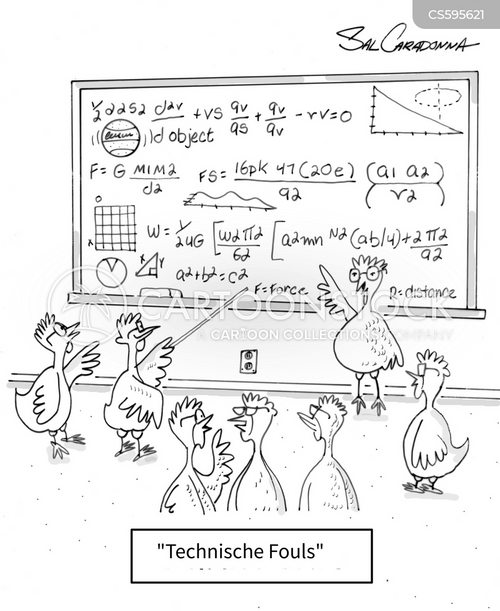 CS595621
SAL CARADONNA
1/2 222S2 d2v/ +VS qv/qs + qv/qv - rv=0
d object
F=G M1M2/d2
FS= 16pk 47(20e)/q2
(a1 a2)/r2
W= 1/24G [W2π2/62 [a2mn N2(ab/4)+2π2/a2
a2+b2=c2
F=Force
D=distance
CARTOONSTOCK
A CARTOON COLLECTIONS COMPANY
"Technische Fouls"